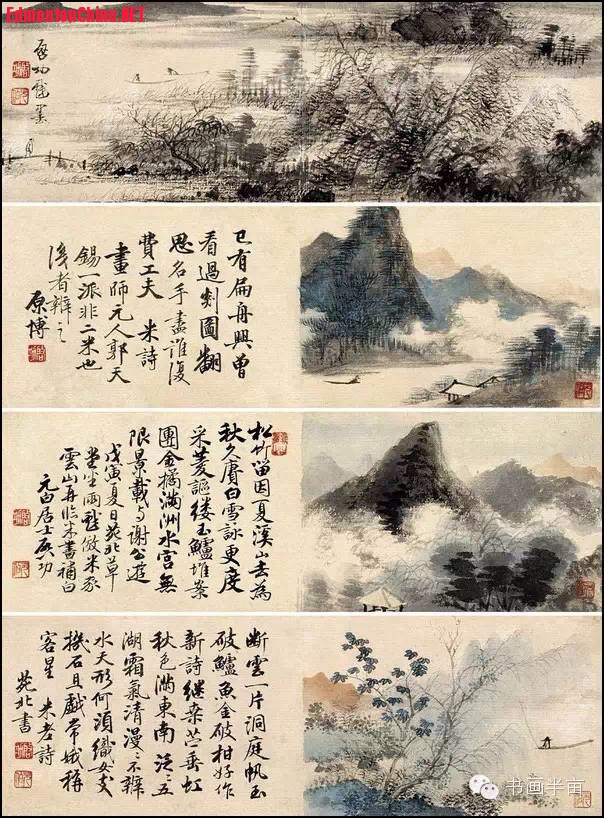 EdmontonChina.NET
启功戲墨
已有扁舟興曾
看過剡圖翻
思名手盡誰復
費工夫 米詩
畫師元人郭天
錫一派非二米也
後者辩之
原博
松竹留因夏溪山去為
秋久賡白雪詠更度
采菱謳縷玉鱸堆案
團金橘滿洲水宮無
限景載与謝公遊
戊寅夏日苑北草
堂坐雨戲倣米家
雲山再临米書補白
元白居士启功
断雲一片洞庭帆玉
破鱸魚金破柑好作
新詩继桑苎垂虹
秋色滿東南泛〻五
湖霜氣清漫〻不辨
水天形何須織女支
機石且戲常娥稱
客星 米老詩
苑北書
书画半亩